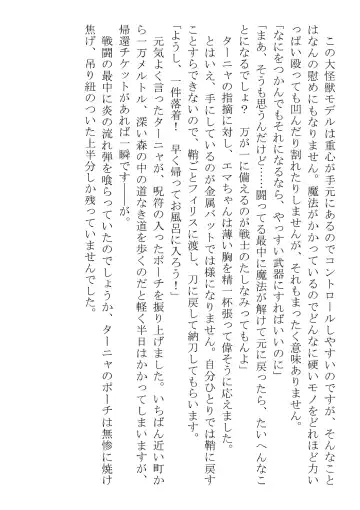 この大怪獣モデルは重心が手元にあるのでコントロールしやすいのですが、そんなこと
はなんの慰めにもなりません。魔法がかかっているのでどんなに硬いモノをどれほど力い
っぱい殴っても凹んだり割れたりしませんが、それもまったく意味ありません。
「なにをつかんでもそれになるなら、やっすい武器にすればいいのに」
「まあ、そうも思うんだけど……闘ってる最中に魔法が解けて元に戻ったら、たいへんなこ
とになるでしょ？　万が一に備えるのが戦士のたしなみってもんよ」
　ターニャの指摘に対し、エマちゃんは薄い胸を精一杯張って偉そうに応えました。
　とはいえ、手にしているのが金属バットでは様になりません。自分ひとりでは鞘に戻す
ことすらできないので、鞘ごとフィリスに渡し、刀に戻して納刀してもらいます。
「ようし、一件落着！　早く帰ってお風呂に入ろう！」
　元気よく言ったターニャが、呪符の入ったポーチを振り上げました。いちばん近い町か
ら一万メルトル、深い森の中の道なき道を歩くのだと軽く半日はかかってしまいますが、
帰還チケットがあれば一瞬です――が。
　戦闘の最中に炎の流れ弾を喰らっていたのでしょうか、ターニャのポーチは無惨に焼け
焦げ、吊り紐のついた上半分しか残っていませんでした。